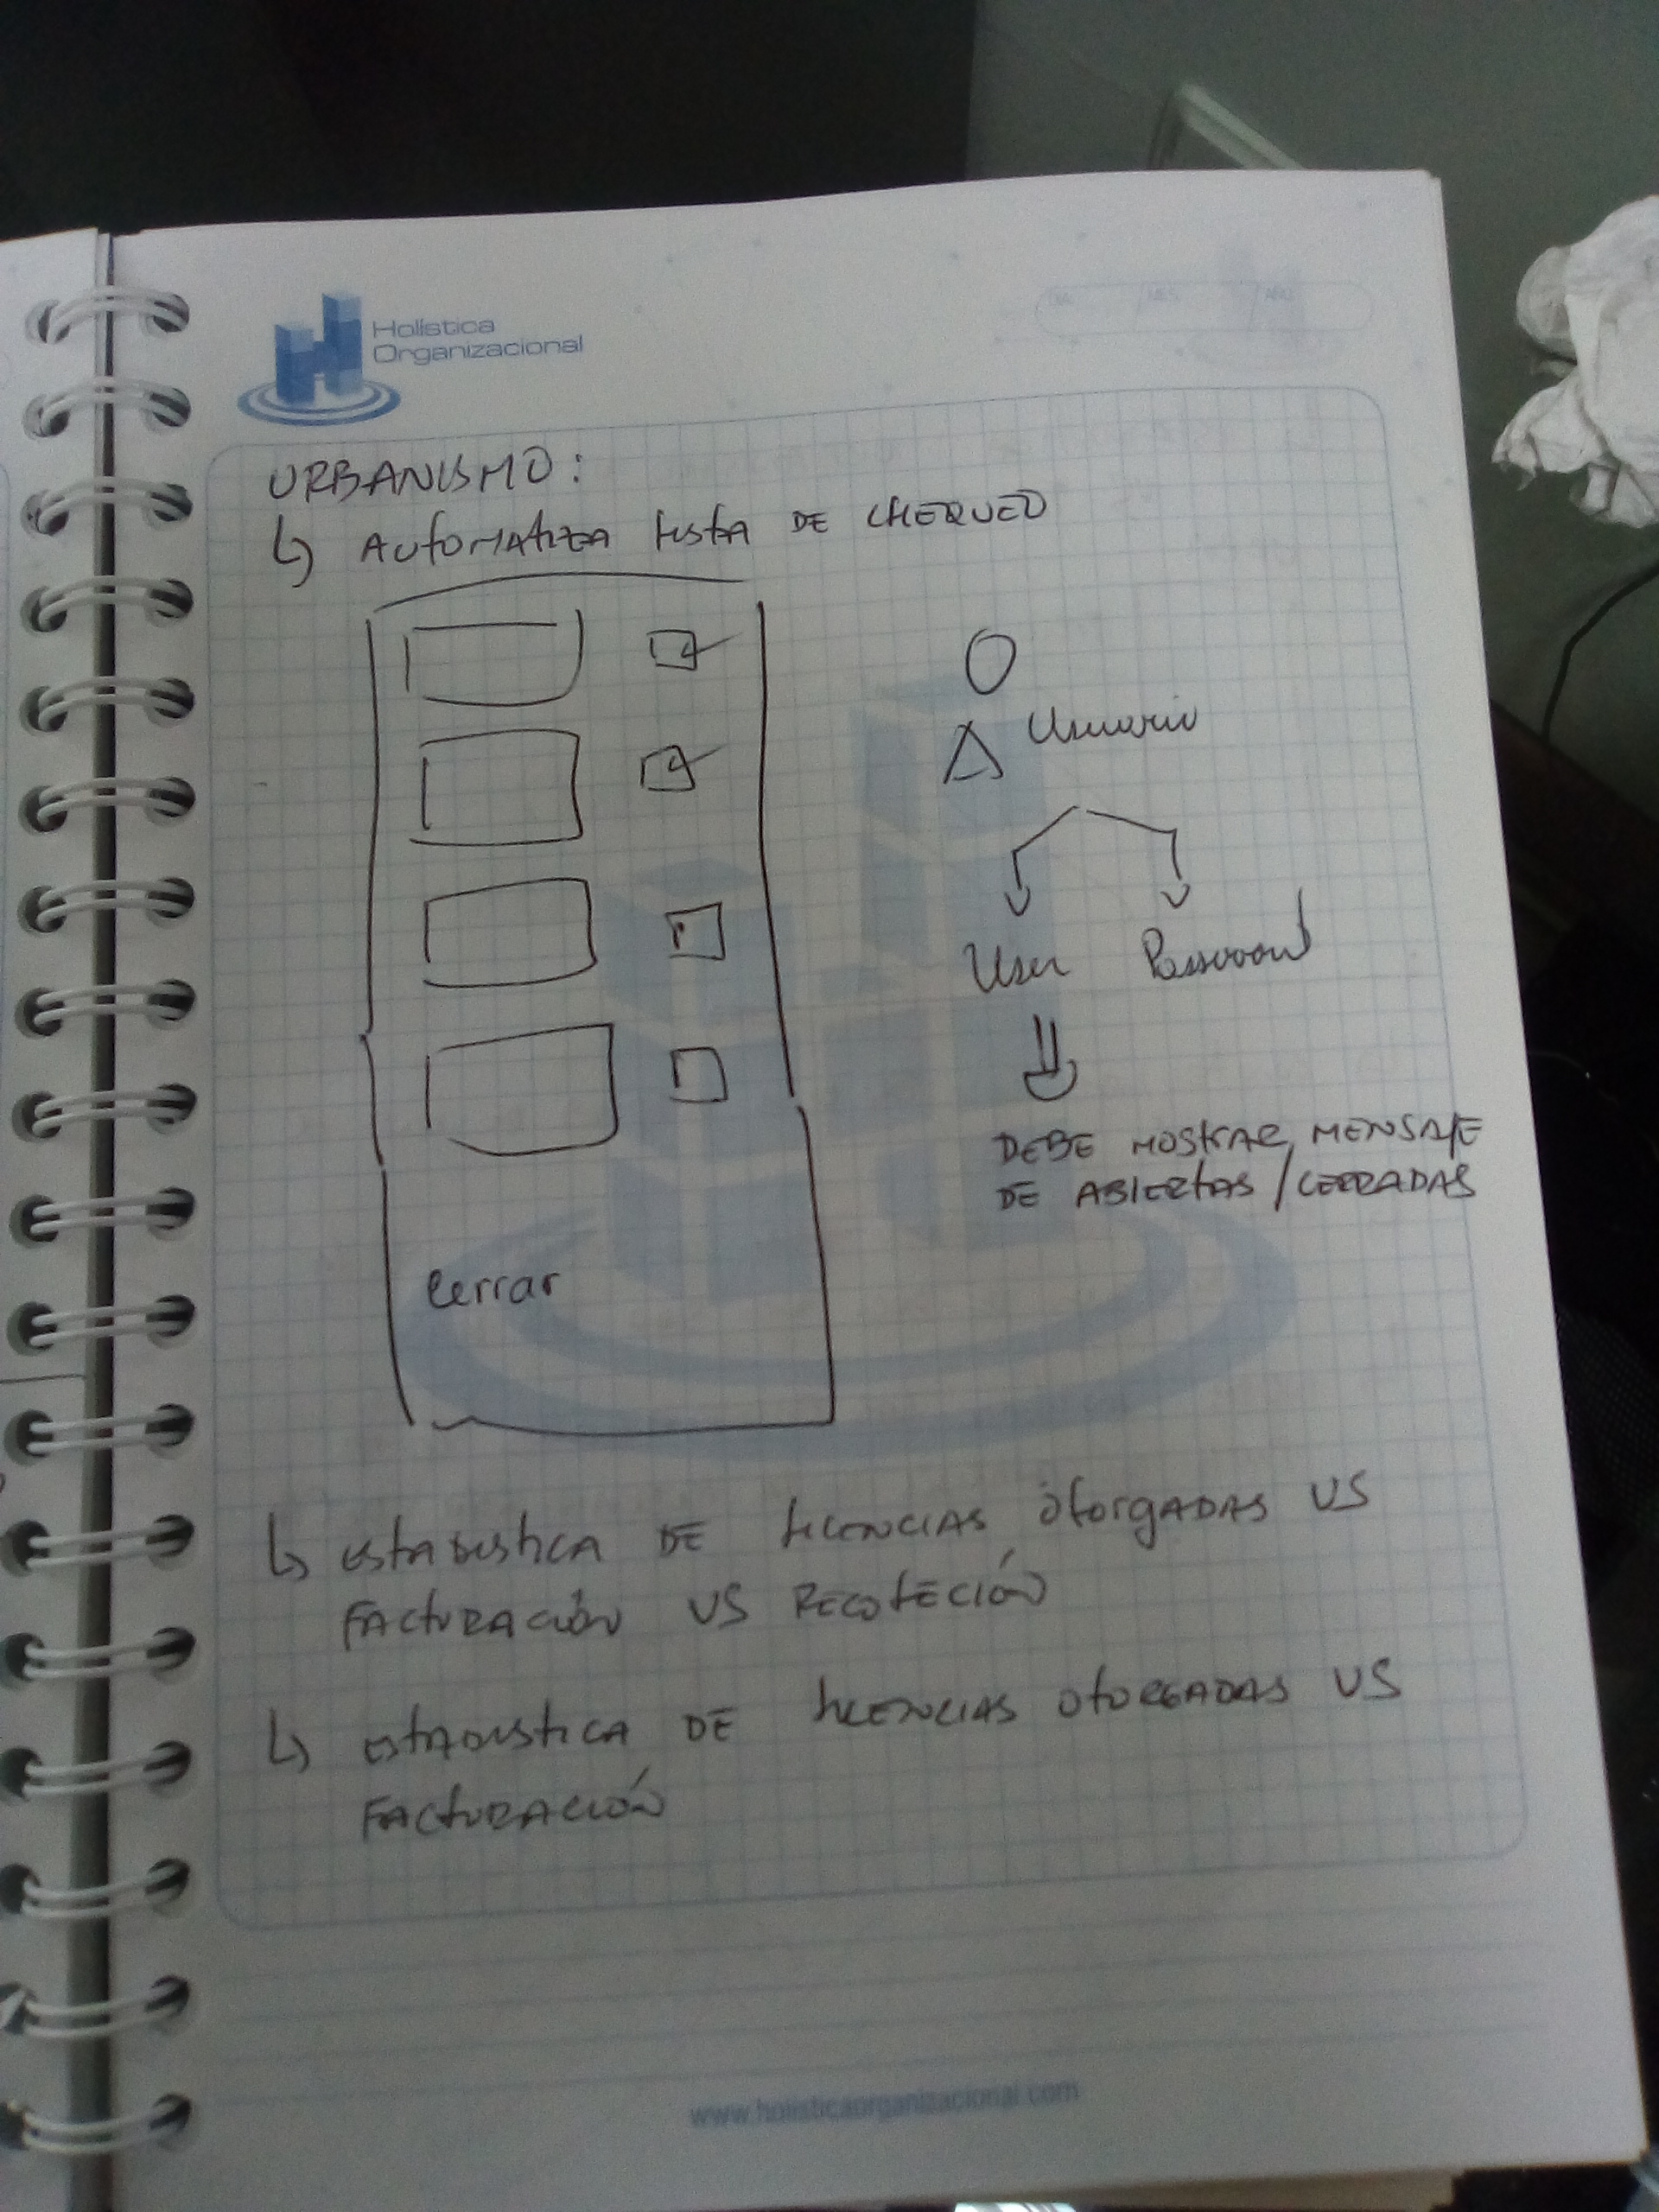 Holística
Organizacional
DIA MES AÑO
URBANISMO:
↳ AUTOMATIZA LISTA DE CHEQUEO
Usuario
User Password
DEBE MOSTRAR MENSAJE
DE ABIERTAS / CERRADAS
Cerrar
↳ ESTADISTICA DE LICENCIAS OTORGADAS VS
FACTURACIÓN VS RECOLECIÓN
↳ ESTADISTICA DE LICENCIAS OTORGADAS VS
FACTURACIÓN
www.holisticaorganizacional.com